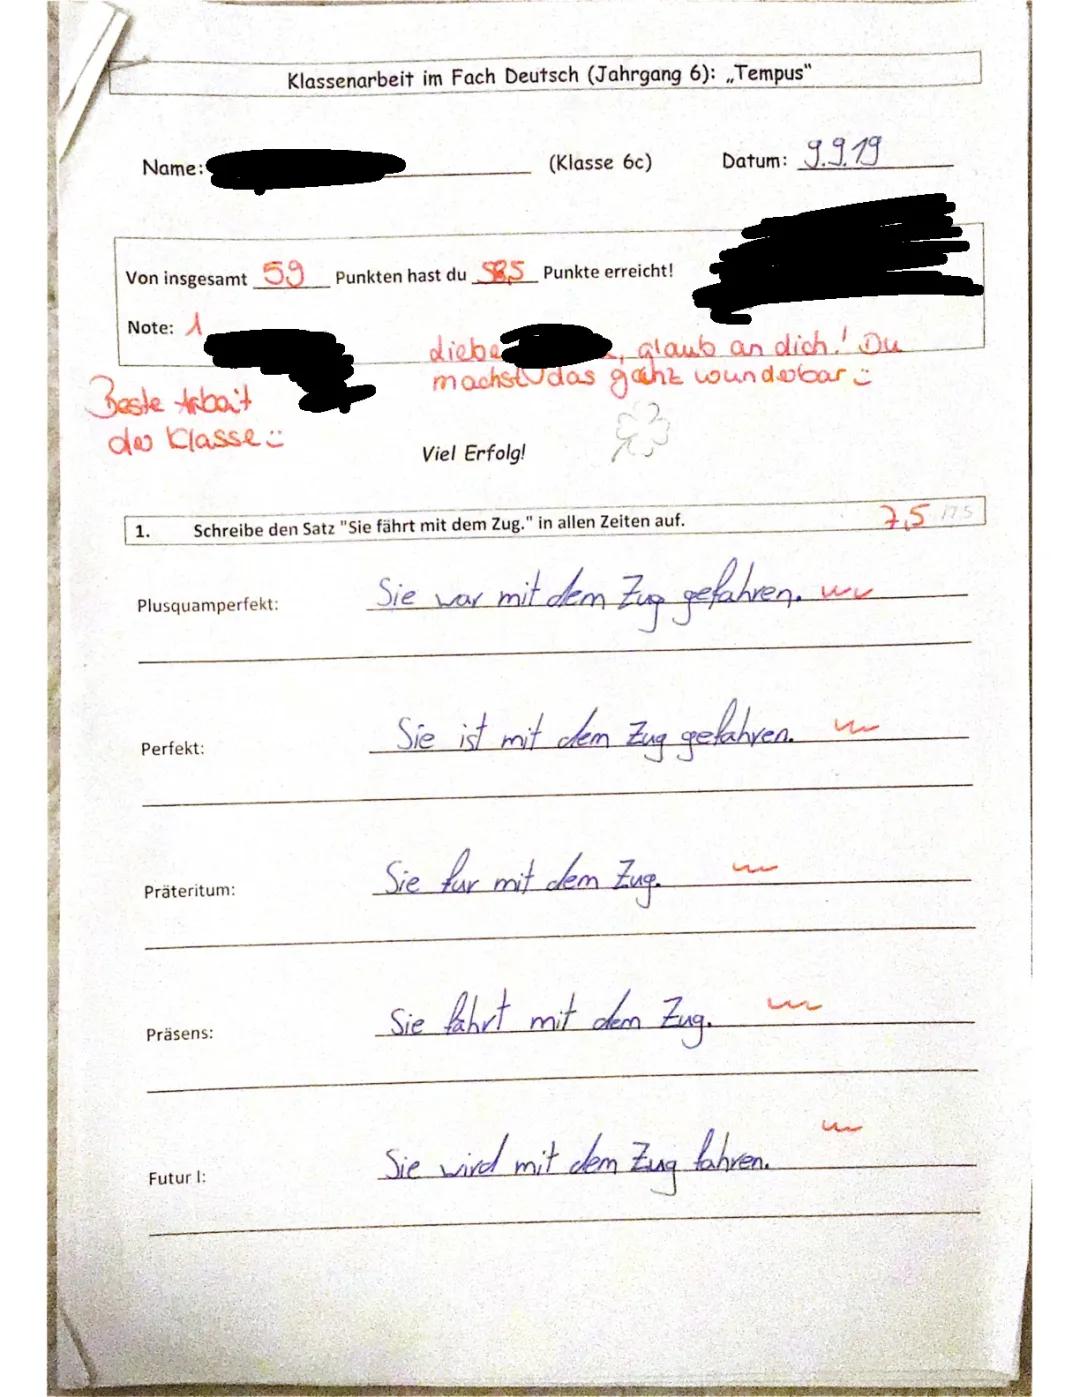 Klassenarbeit im Fach Deutsch (Jahrgang 6): „Tempus"
Name: (Klasse 6c) Datum: 9.9.19
Von insgesamt 59 Punkten hast du 58,5 Punkte erreicht!
Note: 1
liebe , glaub an dich! Du
machst das ganz wunderbar
Beste Arbeit
der Klasse
Viel Erfolg!
1. Schreibe den Satz "Sie fährt mit dem Zug." in allen Zeiten auf. 7,5 /7.5
Plusquamperfekt: Sie war mit dem Zug gefahren.
Perfekt: Sie ist mit dem Zug gefahren.
Präteritum: Sie fur mit dem Zug.
Präsens: Sie fährt mit dem Zug.
Futur I: Sie wird mit dem Zug fahren.